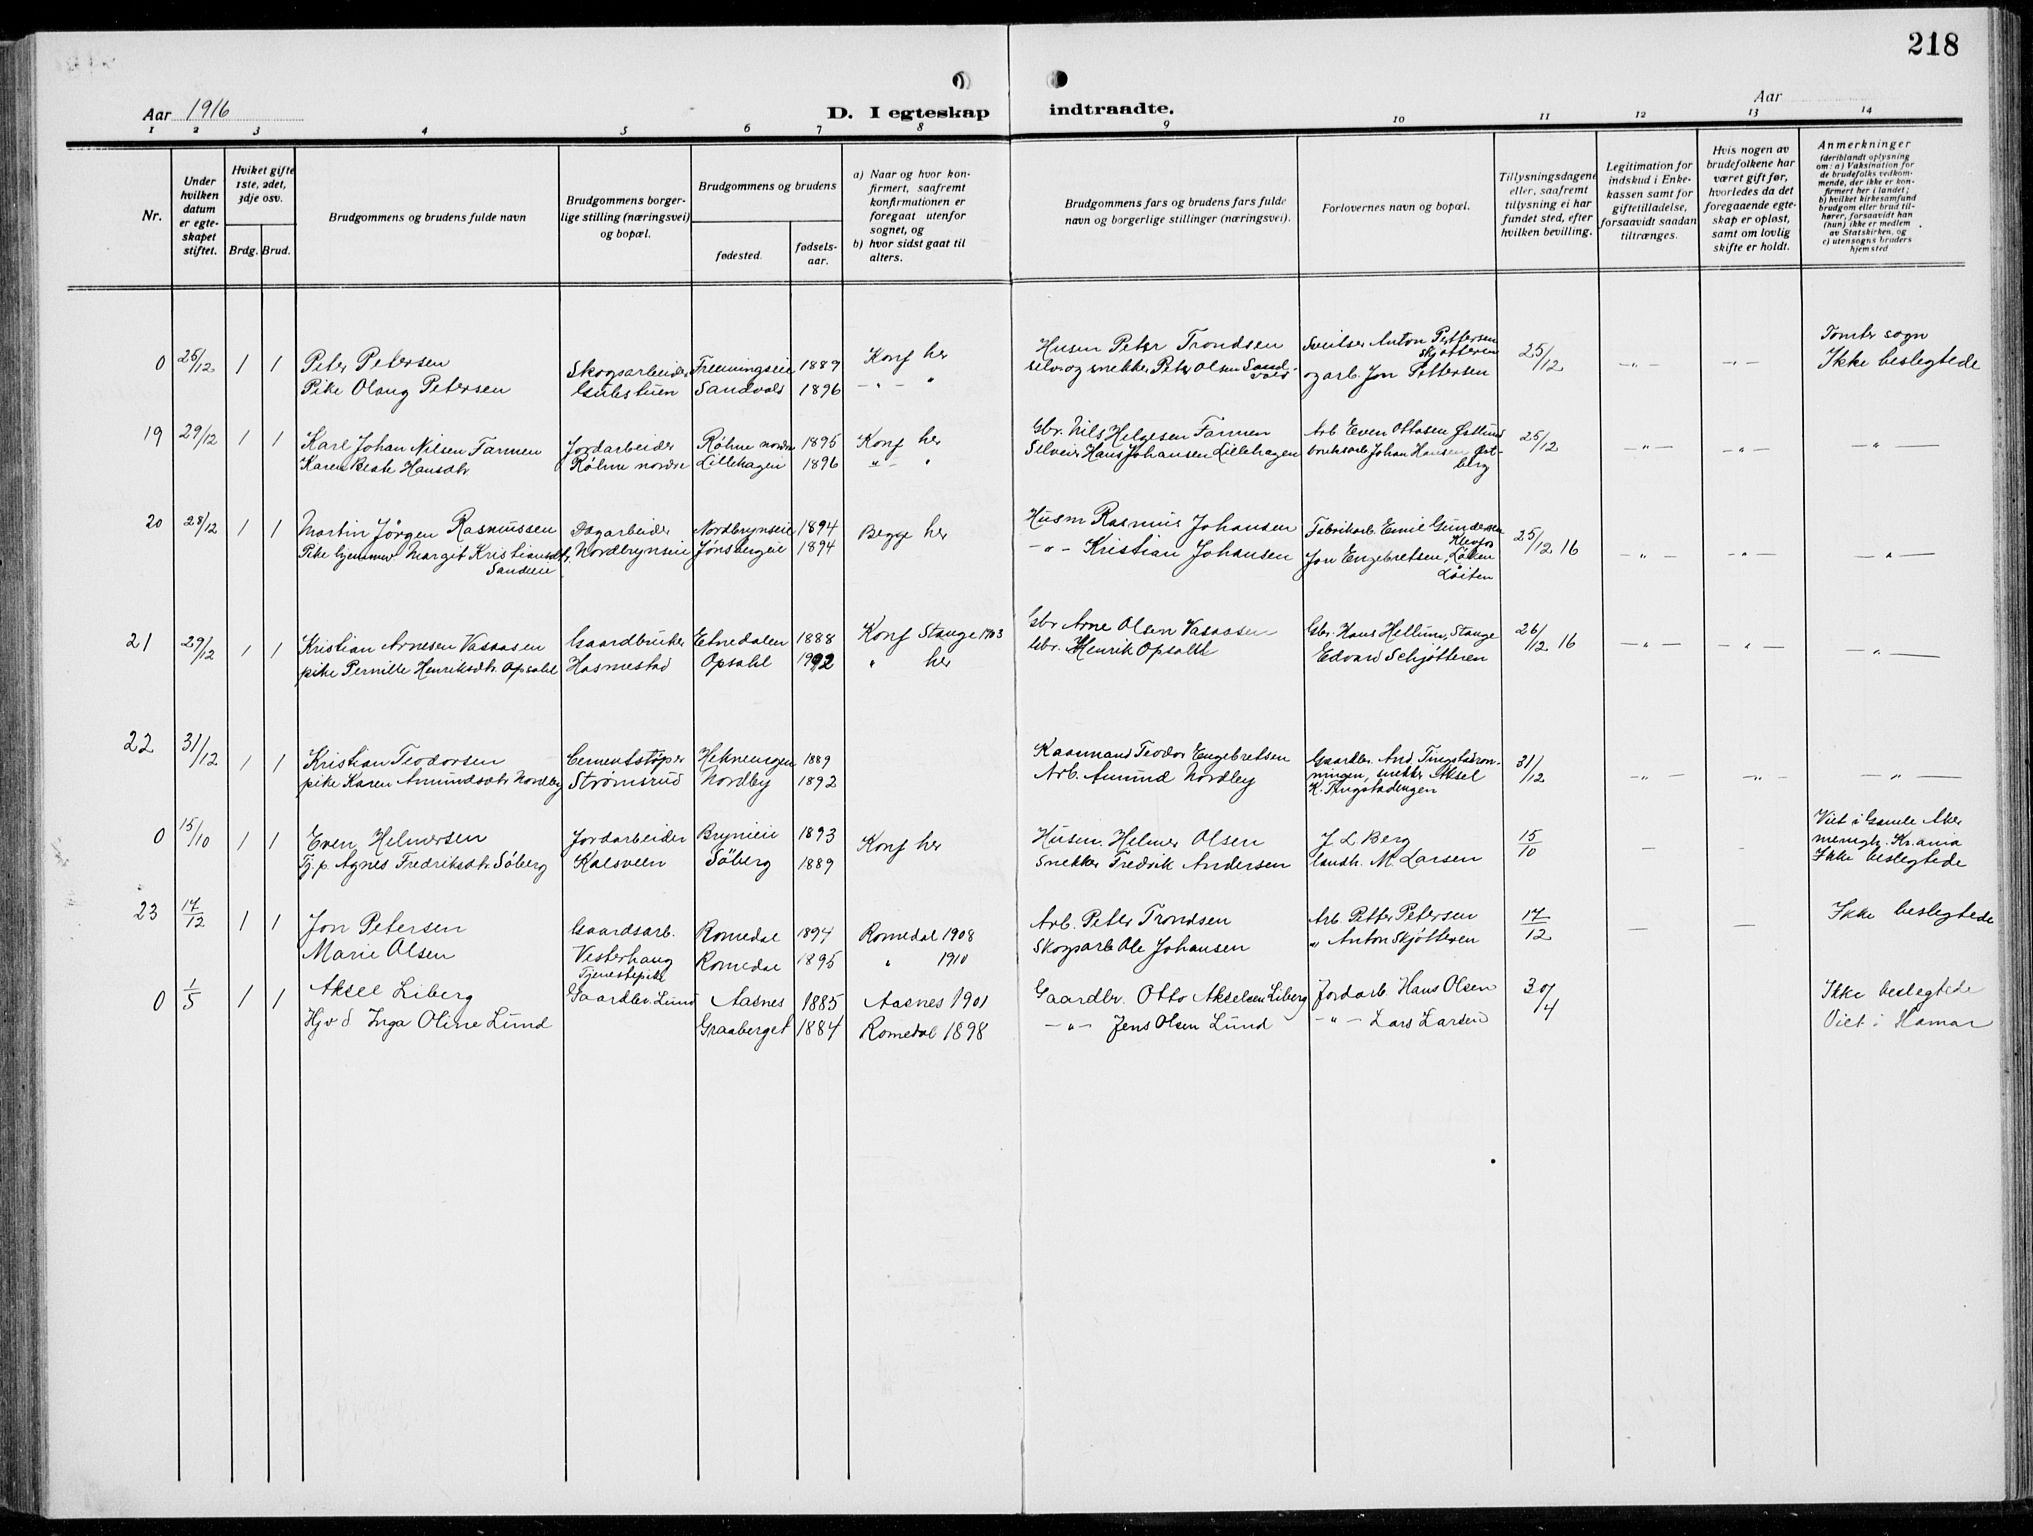 218
Aar 1916
D. I egteskap indtraadte.
Aar
1 2 3 4 5 6 7 8 9 10 11 12 13 14
Nr.
Under hvilken datum er egteskapet stiftet.
Hviket gifte 1ste, 2det, 3dje osv.
Brdg. Brud.
Brudgommens og brudens fulde navn
Brudgommens borgerlige stilling (næringsvei) og bopæl.
Brudgommens og brudens
fødested.
fødselsaar.
a) Naar og hvor konfirmert, saafremt konfirmationen er foregaat utenfor sognet, og
b) hvor sidst gaat til alters.
Brudgommens fars og brudens fars fulde navn og borgerlige stillinger (næringsvei).
Forlovernes navn og bopæl.
Tillysningsdagene eller, saafremt tillysning ei har fundet sted, efter hvilken bevilling.
Legitimation for indskud i Enkekassen samt for giftetilladelse, forsaavidt saadan tiltrænges.
Hvis nogen av brudefolkene har været gift før, hvorledes da det foregaaende egteskap er opløst, samt om lovlig skifte er holdt.
Anmerkninger
(deriblandt oplysning om: a) Vaksination for de brudefolks vedkommende, der ikke er konfirmert her i landet;
b) hvilket kirkesamfund brudgom eller brud tilhører, forsaavidt han (hun) ikke er medlem av Statskirken, og
c) utensogns bruders hjemsted
0 25/12 1 1 Peter Petersen Skogsarbeider 1889 Konf her Husm Peter Trondsen Sveitser Anton Pettersen Skjøtteren 25/12 Tomter sogn
Pike Olaug Petersen Sandvold 1896 selv og snekker Peter Olsen Sandvold og arb. Jon Pettersen Ikke beslegtede
19 29/12 1 1 Karl Johan Nilsen Farmen Jordarbeider Røhne nordre 1895 Konf her Gbr. Nils Helgesen Farmen Arb Even Ottosen Østlund 25/12
Karen Beate Hansdtr Røhne nordre Lillehagen 1896 " - " Selveier Hans Johansen Lillehagen Johan Hansen Østberg
20 28/12 1 1 Martin Jörgen Rasmussen Dagarbeider Nordbrynseie 1894 Begge her Husm Rasmus Johansen Fabrikarb Emil Gundersen Klevfos 25/12 16
Pike hjemmev. Margit Kristiansdtr. Sandeie Nordbrynseie Jønsbergeie 1894 - " - Kristian Johansen Jon Engebretsen, Løken Løiten
21 29/12 1 1 Kristian Arnesen Vasaasen Gaardbruker Etnedalen 1888 Konf Stange 1903 Gbr Arne Olsen Vasaasen Gbr. Hans Hellum, Stange 26/12 16
pike Pernille Henriksdtr. Opsahl Hasmestad Opsahl 1992 " her Gbr. Henrik Opsahl Edvard Schjøtteren
22 31/12 1 1 Kristian Teodorsen Cementstøper Hekneengen 1889 Teodor Engebretsen Gaardbr. And. 31/12
pike Karen Amundsdtr Nordby Strømsrud Nordby 1892 Arb. Amund Nordby snekker Aksel K. Tingstadengen
0 15/10 1 1 Even Helmersen Jordarbeider Bryneie 1893 Konf her Husm. Helmer Olsen J L Berg 15/10 - - Viet i Gamle Aker menigh. Kr.ania
Tj. p. Agnes Fredriksdtr Söberg Kalsveen Söberg 1889 Snekker Fredrik Andersen landh. M. Larsen Ikke beslegtede
23 17/12 1 1 Jon Petersen Gaardsarb. Romedal 1894 Romedal 1908 Arb. Peter Trondsen Arb. Petter Petersen 17/12 - - Ikke beslegtede
Marie Olsen Vesterhaug Tjenestepike Romedal 1895 " 1910 Skogsarb Ole Johansen " Anton Skjøtteren
0 1/5 1 1 Aksel Liberg Gaardbr. Lund Aasnes 1885 Aasnes 1901 Gaardbr. Otto Akselsen Liberg Jordarb. Hans Olsen 30/4 Ikke beslegtede
Hjv d Inga Oline Lund Graaberget 1884 Romedal 1898 - " - Jens Olsen Lund - " - Lars Larsen Viet i Hamar